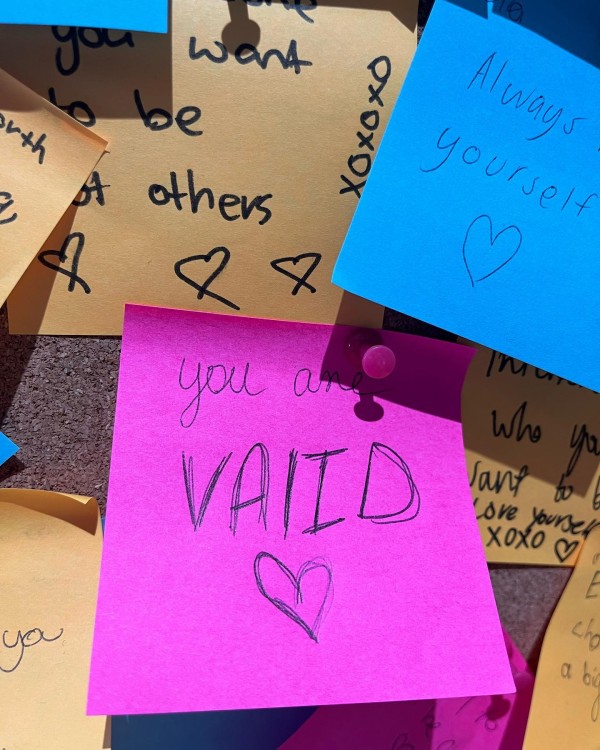 you want
to be
others
xoxoxo
Always
yourself
you are
VALID
who you
want to
Love yourself
XOXO
you
a big